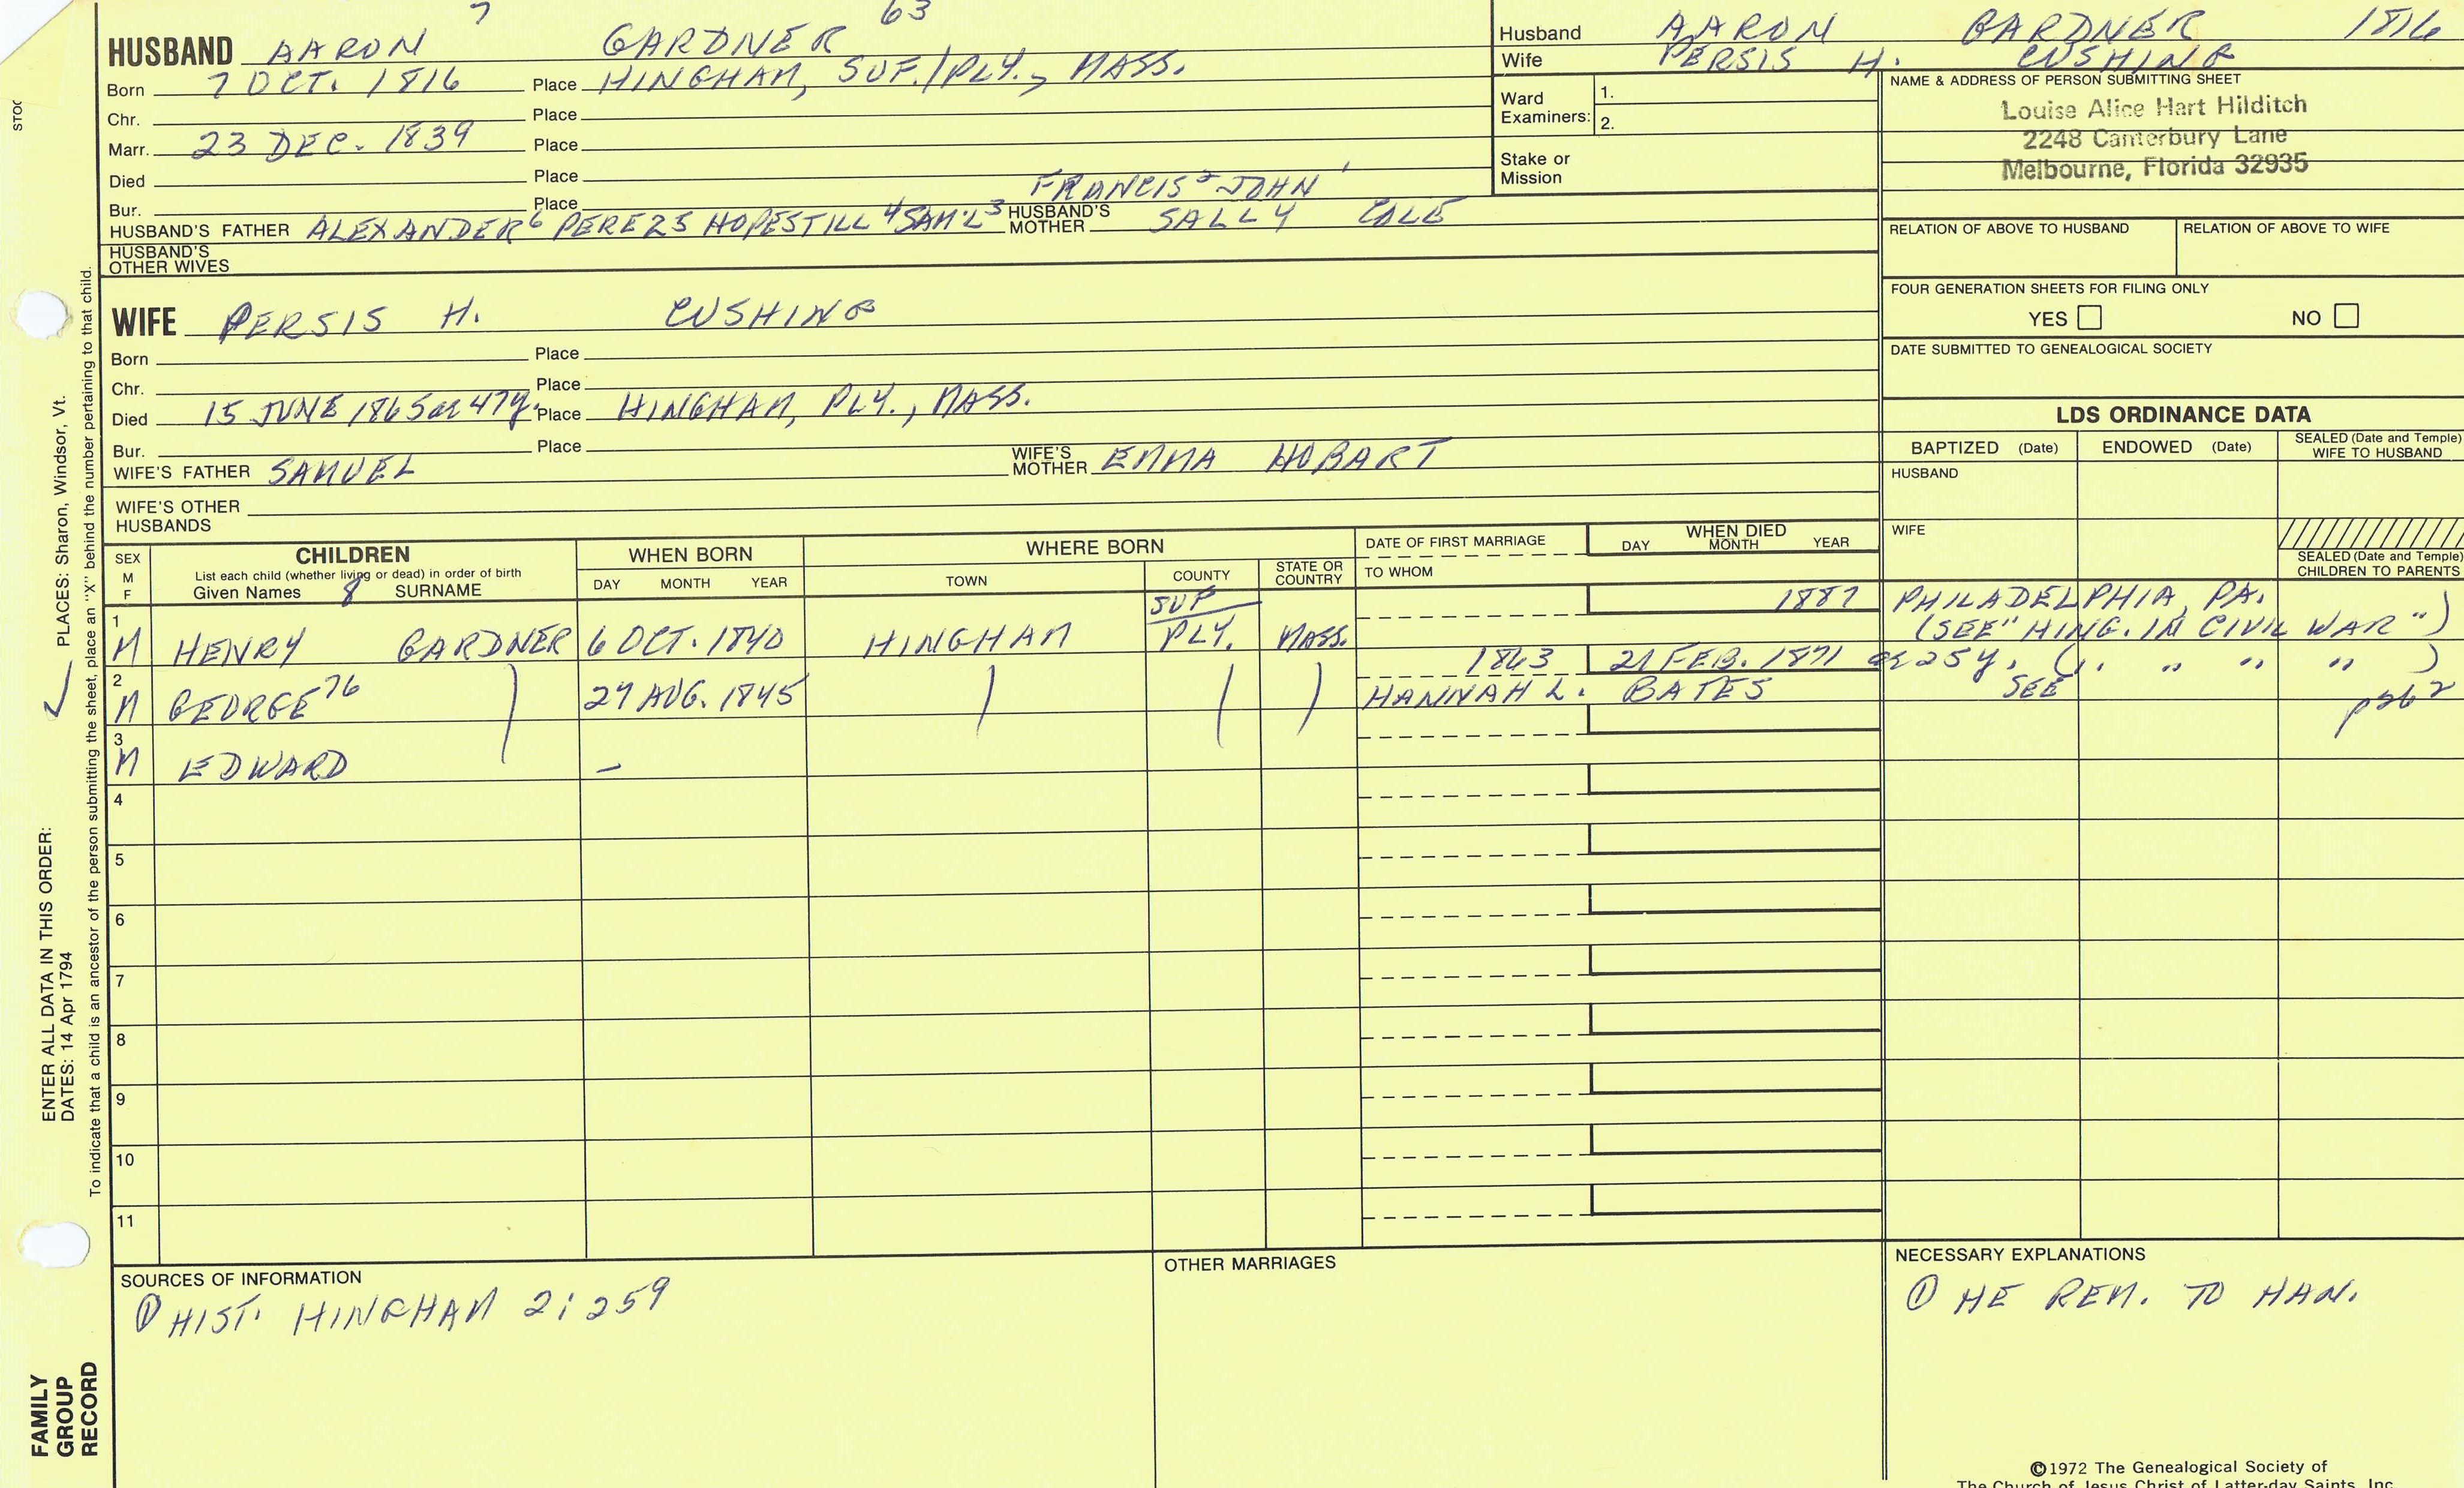 7 63
HUSBAND AARON GARDNER
Born 7 OCT. 1816 Place HINGHAM, SUF./PLY., MASS.
Chr. Place
Marr. 23 DEC. 1839 Place
Died Place
Bur. Place FRANCIS 2 JOHN 1
HUSBAND'S FATHER ALEXANDER 6 PEREZ 5 HOPESTILL 4 SAM'L 3 HUSBAND'S MOTHER SALLY COLE
HUSBAND'S OTHER WIVES
Husband AARON GARDNER 1816
Wife PERSIS H. CUSHING
Ward Examiners: 1.
2.
Stake or Mission
NAME & ADDRESS OF PERSON SUBMITTING SHEET
Louise Alice Hart Hilditch
2248 Canterbury Lane
Melbourne, Florida 32935
RELATION OF ABOVE TO HUSBAND RELATION OF ABOVE TO WIFE
FOUR GENERATION SHEETS FOR FILING ONLY
YES NO
DATE SUBMITTED TO GENEALOGICAL SOCIETY
WIFE PERSIS H. CUSHING
Born Place
Chr. Place
Died 15 JUNE 1865 ae 47y. Place HINGHAM, PLY., MASS.
Bur. Place
WIFE'S FATHER SAMUEL WIFE'S MOTHER EMMA HOBART
WIFE'S OTHER HUSBANDS
LDS ORDINANCE DATA
BAPTIZED (Date) ENDOWED (Date) SEALED (Date and Temple) WIFE TO HUSBAND
HUSBAND
WIFE
SEALED (Date and Temple) CHILDREN TO PARENTS
SEX M F CHILDREN WHEN BORN WHERE BORN DATE OF FIRST MARRIAGE WHEN DIED
List each child (whether living or dead) in order of birth
Given Names 8 SURNAME DAY MONTH YEAR TOWN COUNTY STATE OR COUNTRY TO WHOM DAY MONTH YEAR
SUF 1887 PHILADELPHIA, PA.
1 M HENRY GARDNER 6 OCT. 1840 HINGHAM PLY. MASS. (SEE "HING. IN CIVIL WAR")
1863 21 FEB. 1871 ae 25y. ( " " " " )
2 M GEORGE 76 27 AUG. 1845 HANNAH L. BATES SEE p262
3 M EDWARD –
4
5
6
7
8
9
10
11
SOURCES OF INFORMATION
① HIST. HINGHAM 2:259
OTHER MARRIAGES
NECESSARY EXPLANATIONS
① HE REM. TO HAN.
©1972 The Genealogical Society of
The Church of Jesus Christ of Latter-day Saints, Inc.
STOC
ENTER ALL DATA IN THIS ORDER:
DATES: 14 Apr 1794 PLACES: Sharon, Windsor, Vt.
To indicate that a child is an ancestor of the person submitting the sheet, place an "X" behind the number pertaining to that child.
FAMILY
GROUP
RECORD